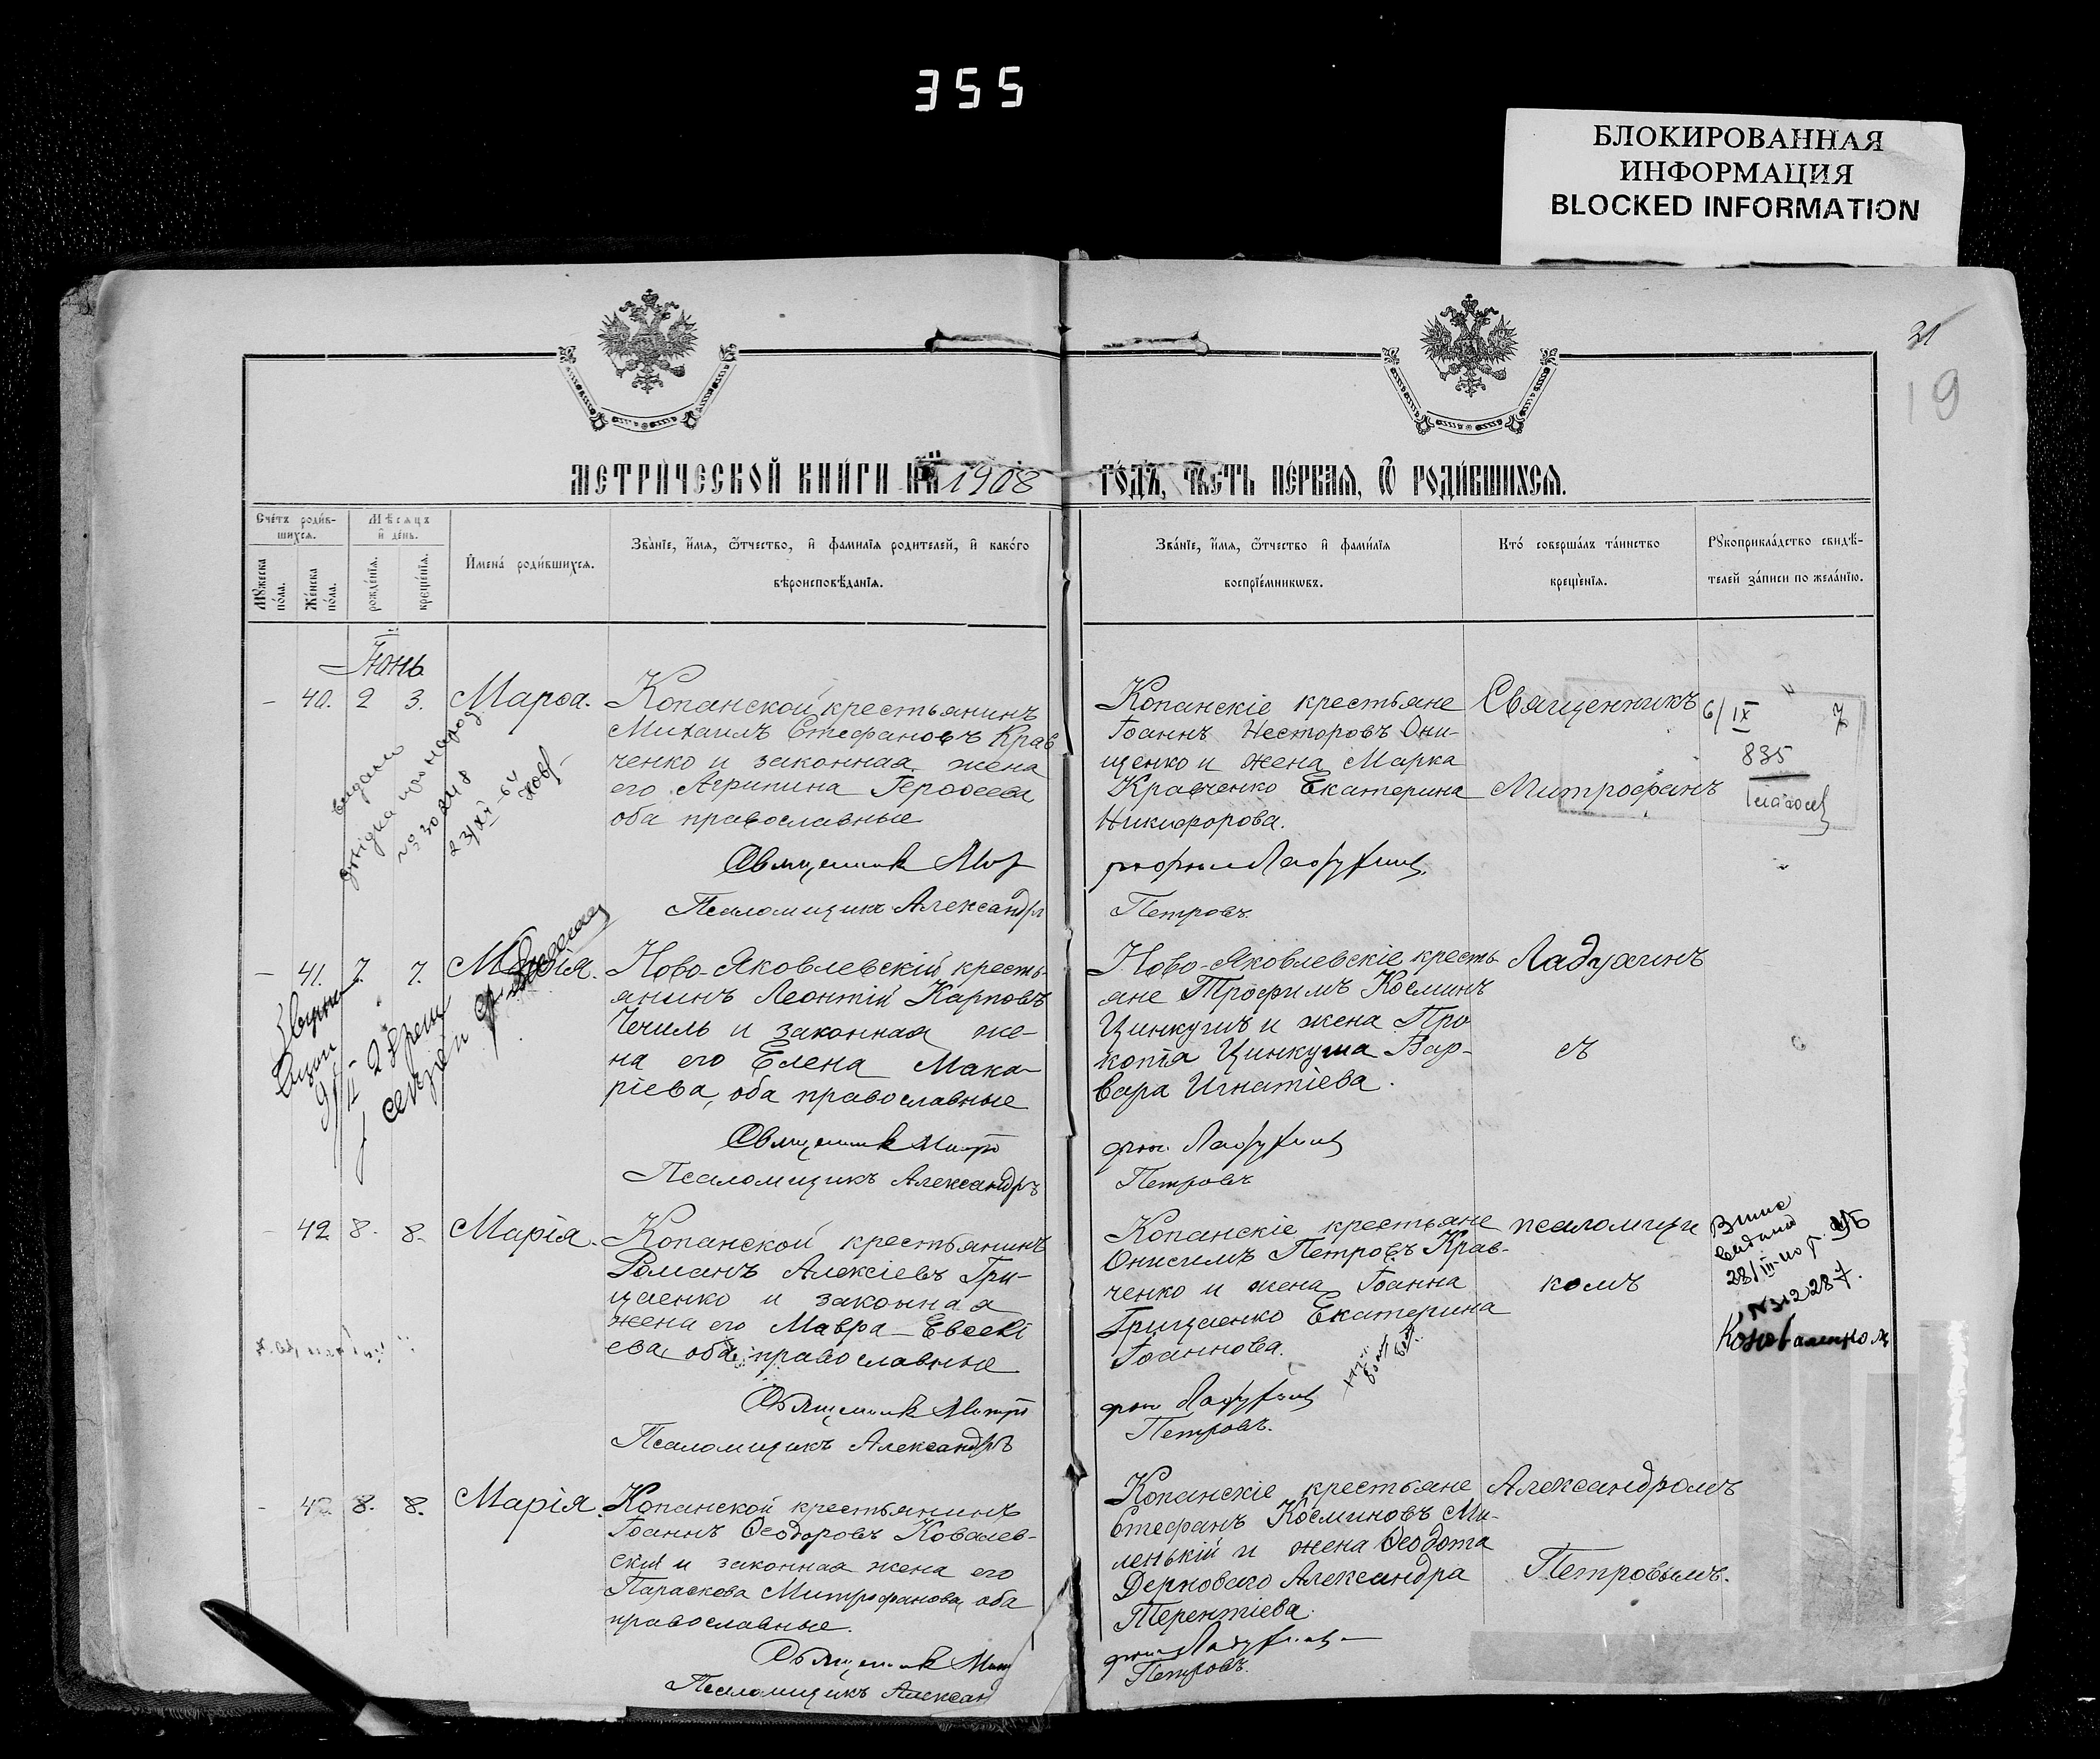 355
БЛОКИРОВАННАЯ
ИНФОРМАЦИЯ
BLOCKED INFORMATION
31
19
МЕТРИЧЕСКОЙ КНИГИ НА 1908
ГОДЪ, ЧАСТЬ ПЕРВАЯ, Ѿ РОДИВШИХСЯ.
Счетъ родив-
шихся.
Мужеска
пола.
Женска
пола.
Мѣсяцъ
и день.
рожденія.
крещенія.
Имена родившихся.
Званіе, имя, ѿтчество, и фамилія родителей, и какого
вѣроисповѣданія.
Званіе, имя, ѿтчество и фамилія
воспріемниковъ.
Кто совершалъ таинство
крещенія.
Рукоприкладство свидѣ-
телей записи по желанію.
Іюнь
40. 2 3. Марѳа.
Копанской крестьянинъ
Михаилъ Стефановъ Крав
ченко и законная жена
его Агрипина
оба православные
Священник
Псаломщикъ Александръ
Копанскіе крестьяне
Іоаннъ Несторовъ Они-
щенко и жена Марка
Кравченко Екатерина
Никифорова.
Петровъ.
Священникъ
Митрофанъ
6/IX
835
видано
№ 30248
23/XI-64
41. 7. 7. Марія.
Ново-Яковлевскій кресть-
янинъ Леонтій Карповъ
Чечиль и законная же-
на его Елена Мака-
ріева, оба православные
Священник Митро
Псаломщикъ Александръ
Ново-Яковлевскіе кресть
яне Трофимъ Косминъ
Цинкушъ и жена Про
копія Цинкуша Вар-
вара Игнатіева.
Петровъ
Ладухинъ
съ
42 8. 8. Марія.
Копанской крестьянинъ
Романъ Алексіевъ Гри-
щенко и законная
жена его Мавра Евсеві
ева оба православные
Священник Митро
Псаломщикъ Александръ
Копанскіе крестьяне
Онисимъ Петровъ Крав-
ченко и жена Іоанна
Грищенко Екатерина
Іоаннова.
Петровъ.
псаломщи
комъ
28/III
8. 8. Марія.
Копанской крестьянинъ
Іоаннъ Ѳеодоровъ Ковалев-
скій и законная жена его
Параскева Митрофанова, оба
православные.
Священник Мит
Псаломщикъ Алексан
Копанскіе крестьяне
Стефанъ Косминовъ Ми-
ленькій и жена Ѳеодота
Дерноваго Александра
Терентіева.
Петровъ.
Александромъ
Петровымъ.